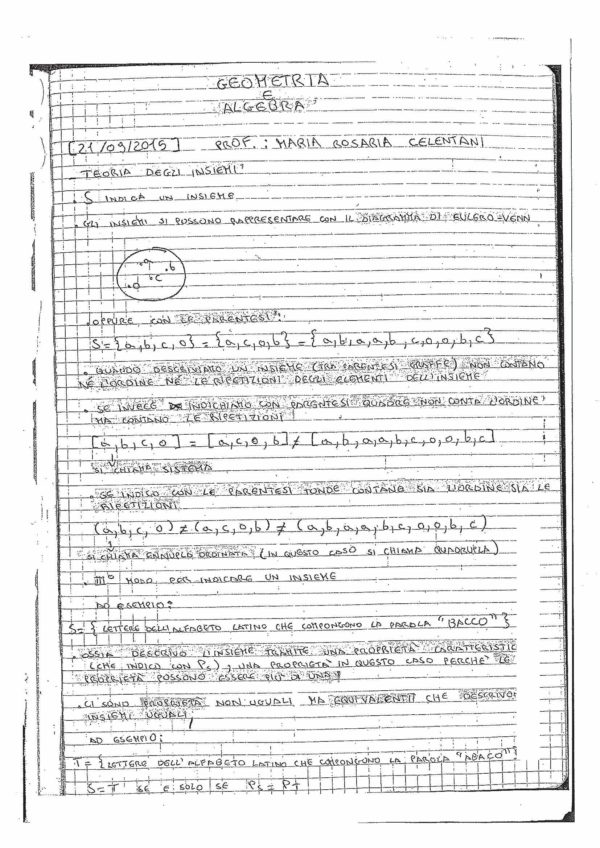 GEOMETRIA
E
ALGEBRA
[21/09/2015] PROF.: MARIA ROSARIA CELENTANI
TEORIA DEGLI INSIEMI
. S INDICA UN INSIEME
. GLI INSIEMI SI POSSONO RAPPRESENTARE CON IL DIAGRAMMA DI EULERO-VENN
.a .b
.o .c
. OPPURE CON LE PARENTESI:
S = {a,b,c,o} = {a,c,o,b} = {a,b,a,a,b,c,o,o,b,c}
. QUANDO DESCRIVIAMO UN INSIEME (TRA PARENTESI GRAFFE) NON CONTANO
NÉ L'ORDINE NÉ LE RIPETIZIONI DEGLI ELEMENTI DELL'INSIEME
. SE INVECE INDICHIAMO CON PARENTESI QUADRE NON CONTA L'ORDINE
MA CONTANO LE RIPETIZIONI
[a,b,c,o] = [a,c,o,b] ≠ [a,b,a,a,b,c,o,o,b,c]
SI CHIAMA SISTEMA
. SE INDICO CON LE PARENTESI TONDE CONTANO SIA L'ORDINE SIA LE
RIPETIZIONI
(a,b,c,o) ≠ (a,c,o,b) ≠ (a,b,a,a,b,c,o,o,b,c)
SI CHIAMA ENNUPLA ORDINATA (IN QUESTO CASO SI CHIAMA QUADRUPLA)
. III° MODO PER INDICARE UN INSIEME
AD ESEMPIO:
S = { LETTERE DELL'ALFABETO LATINO CHE COMPONGONO LA PAROLA "BACCO" }
. OSSIA DESCRIVO L'INSIEME TRAMITE UNA PROPRIETÀ CARATTERISTIC
(CHE INDICO CON Ps), UNA PROPRIETÀ IN QUESTO CASO PERCHÉ LE
PROPRIETÀ POSSONO ESSERE PIÙ DI UNA!
. CI SONO PROPRIETÀ NON UGUALI MA EQUIVALENTI CHE DESCRIVO
INSIEMI UGUALI,
AD ESEMPIO:
T = { LETTERE DELL'ALFABETO LATINO CHE COMPONGONO LA PAROLA "ABACO" }
S = T SE E SOLO SE Ps = Pt